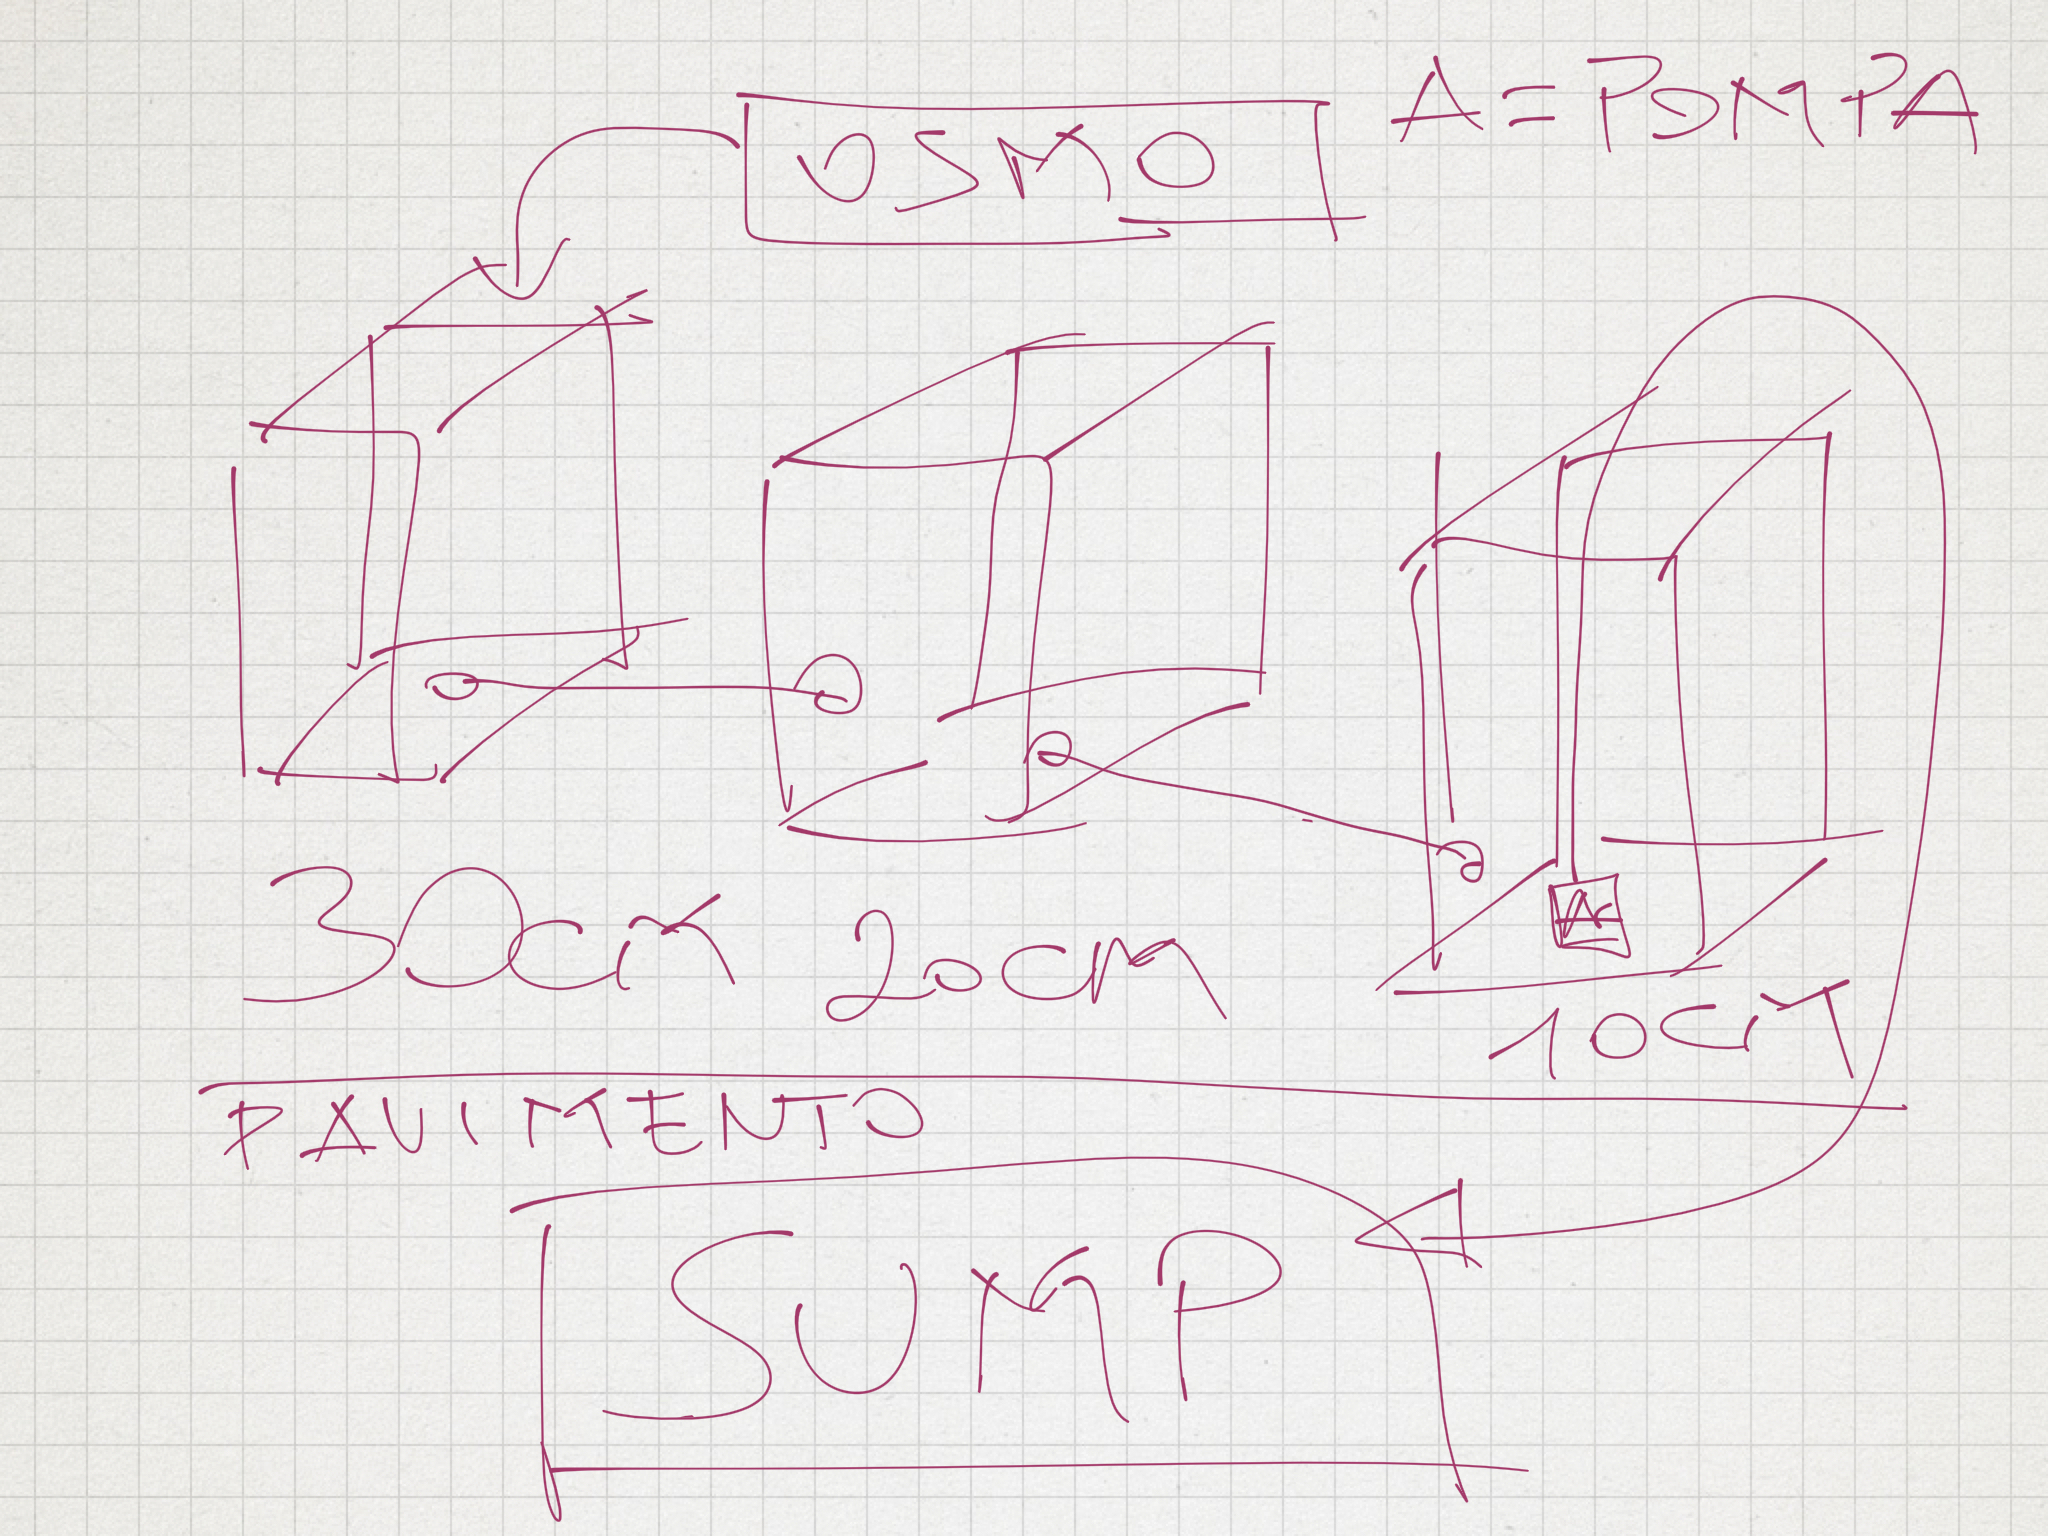 A = POMPA
OSMO
30cm 20cm
10cm
PAVIMENTO
SUMP